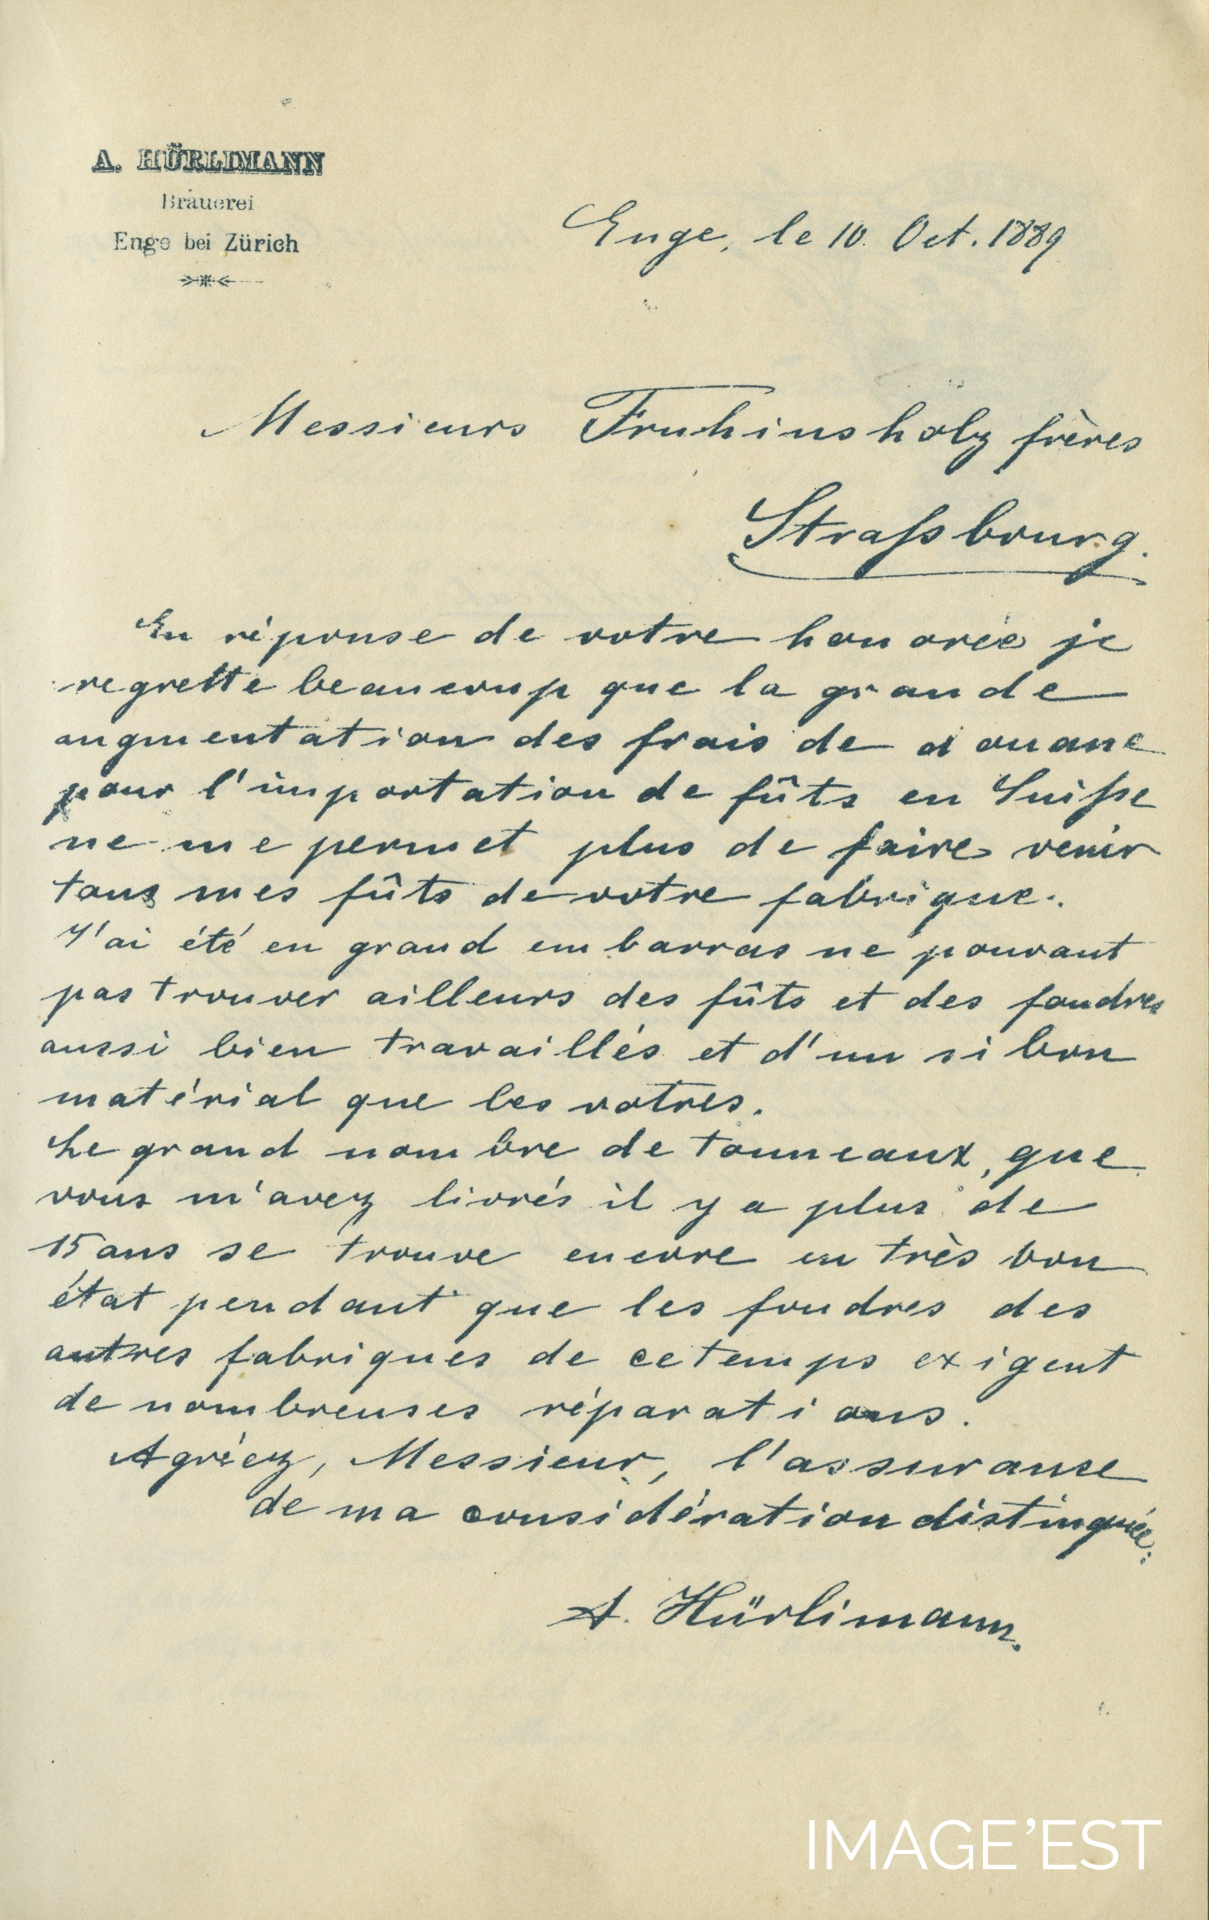 A. HÜRLIMANN
Brauerei
Enge bei Zürich
Enge, le 10. Oct. 1889
Messieurs Fruhinsholz frères
Straſsbourg.
En réponse de votre honorée je
regrette beaucoup que la grande
augmentation des frais de douane
pour l'importation de fûts en Suiſse
ne me permet plus de faire venir
tous mes fûts de votre fabrique.
J'ai été en grand embarras ne pouvant
pas trouver ailleurs des fûts et des foudres
aussi bien travaillés et d'un si bon
matérial que les votres.
Le grand nombre de tonneaux, que
vous m'avez livrés il y a plus de
15 ans se trouve encore en très bon
état pendant que les foudres des
autres fabriques de ce temps exigent
de nombreuses réparations.
Agréez, Messieur, l'assurance
de ma considération distinguée.
A. Hürlimann.
IMAGE'EST